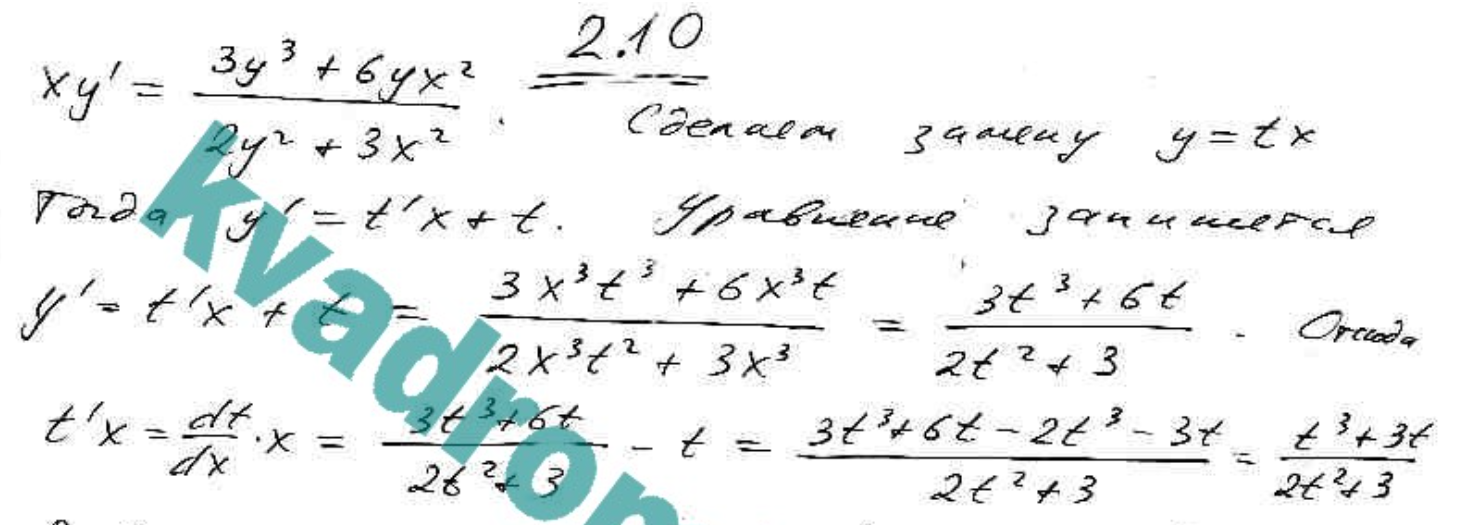 2.10
xy' = (3y³ + 6yx²)/(2y² + 3x²). Сделаем замену y = tx
Тогда y' = t'x + t. Уравнение запишется
y' = t'x + t = (3x³t³ + 6x³t)/(2x³t² + 3x³) = (3t³ + 6t)/(2t² + 3). Отсюда
t'x = dt/dx · x = (3t³ + 6t)/(2t² + 3) - t = (3t³ + 6t - 2t³ - 3t)/(2t² + 3) = (t³ + 3t)/(2t² + 3)
kvadrom